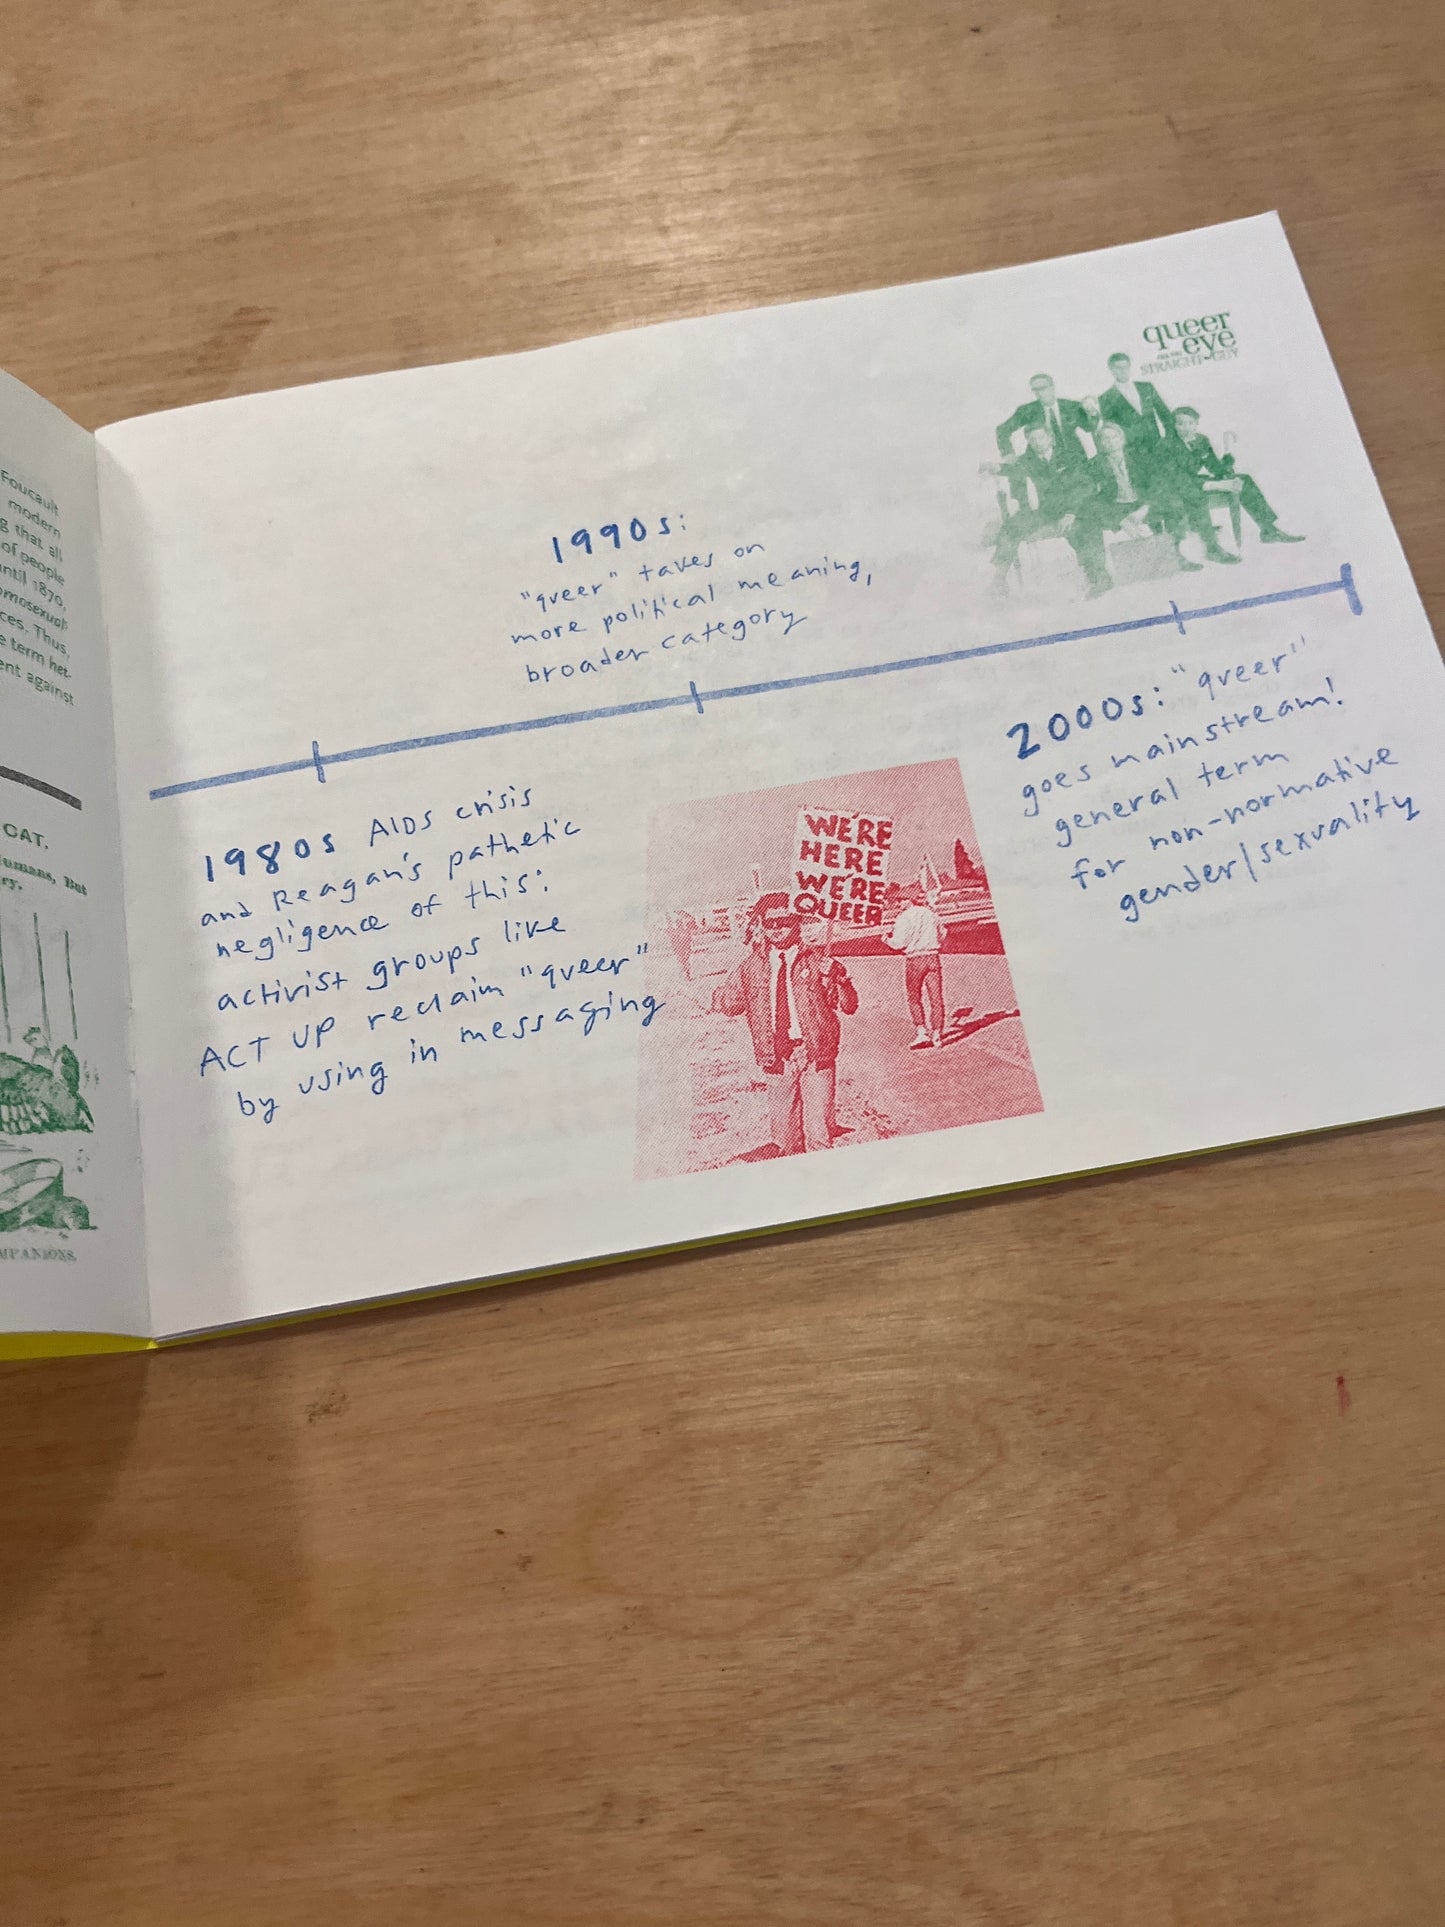 Foucault
modern
g that all
of people
until 1870,
omosexual
ces. Thus,
e term het-
ent against
CAT.
Humans, But
ry.
MPANIONS.
queer
eye
STRAIGHT GUY
1990s:
"queer" takes on
more political meaning,
broader category
1980s AIDS crisis
and Reagan's pathetic
negligence of this:
activist groups like
ACT UP reclaim "queer"
by using in messaging
WE'RE
HERE
WE'RE
QUEER
2000s: "queer"
goes mainstream!
general term
for non-normative
gender/sexuality